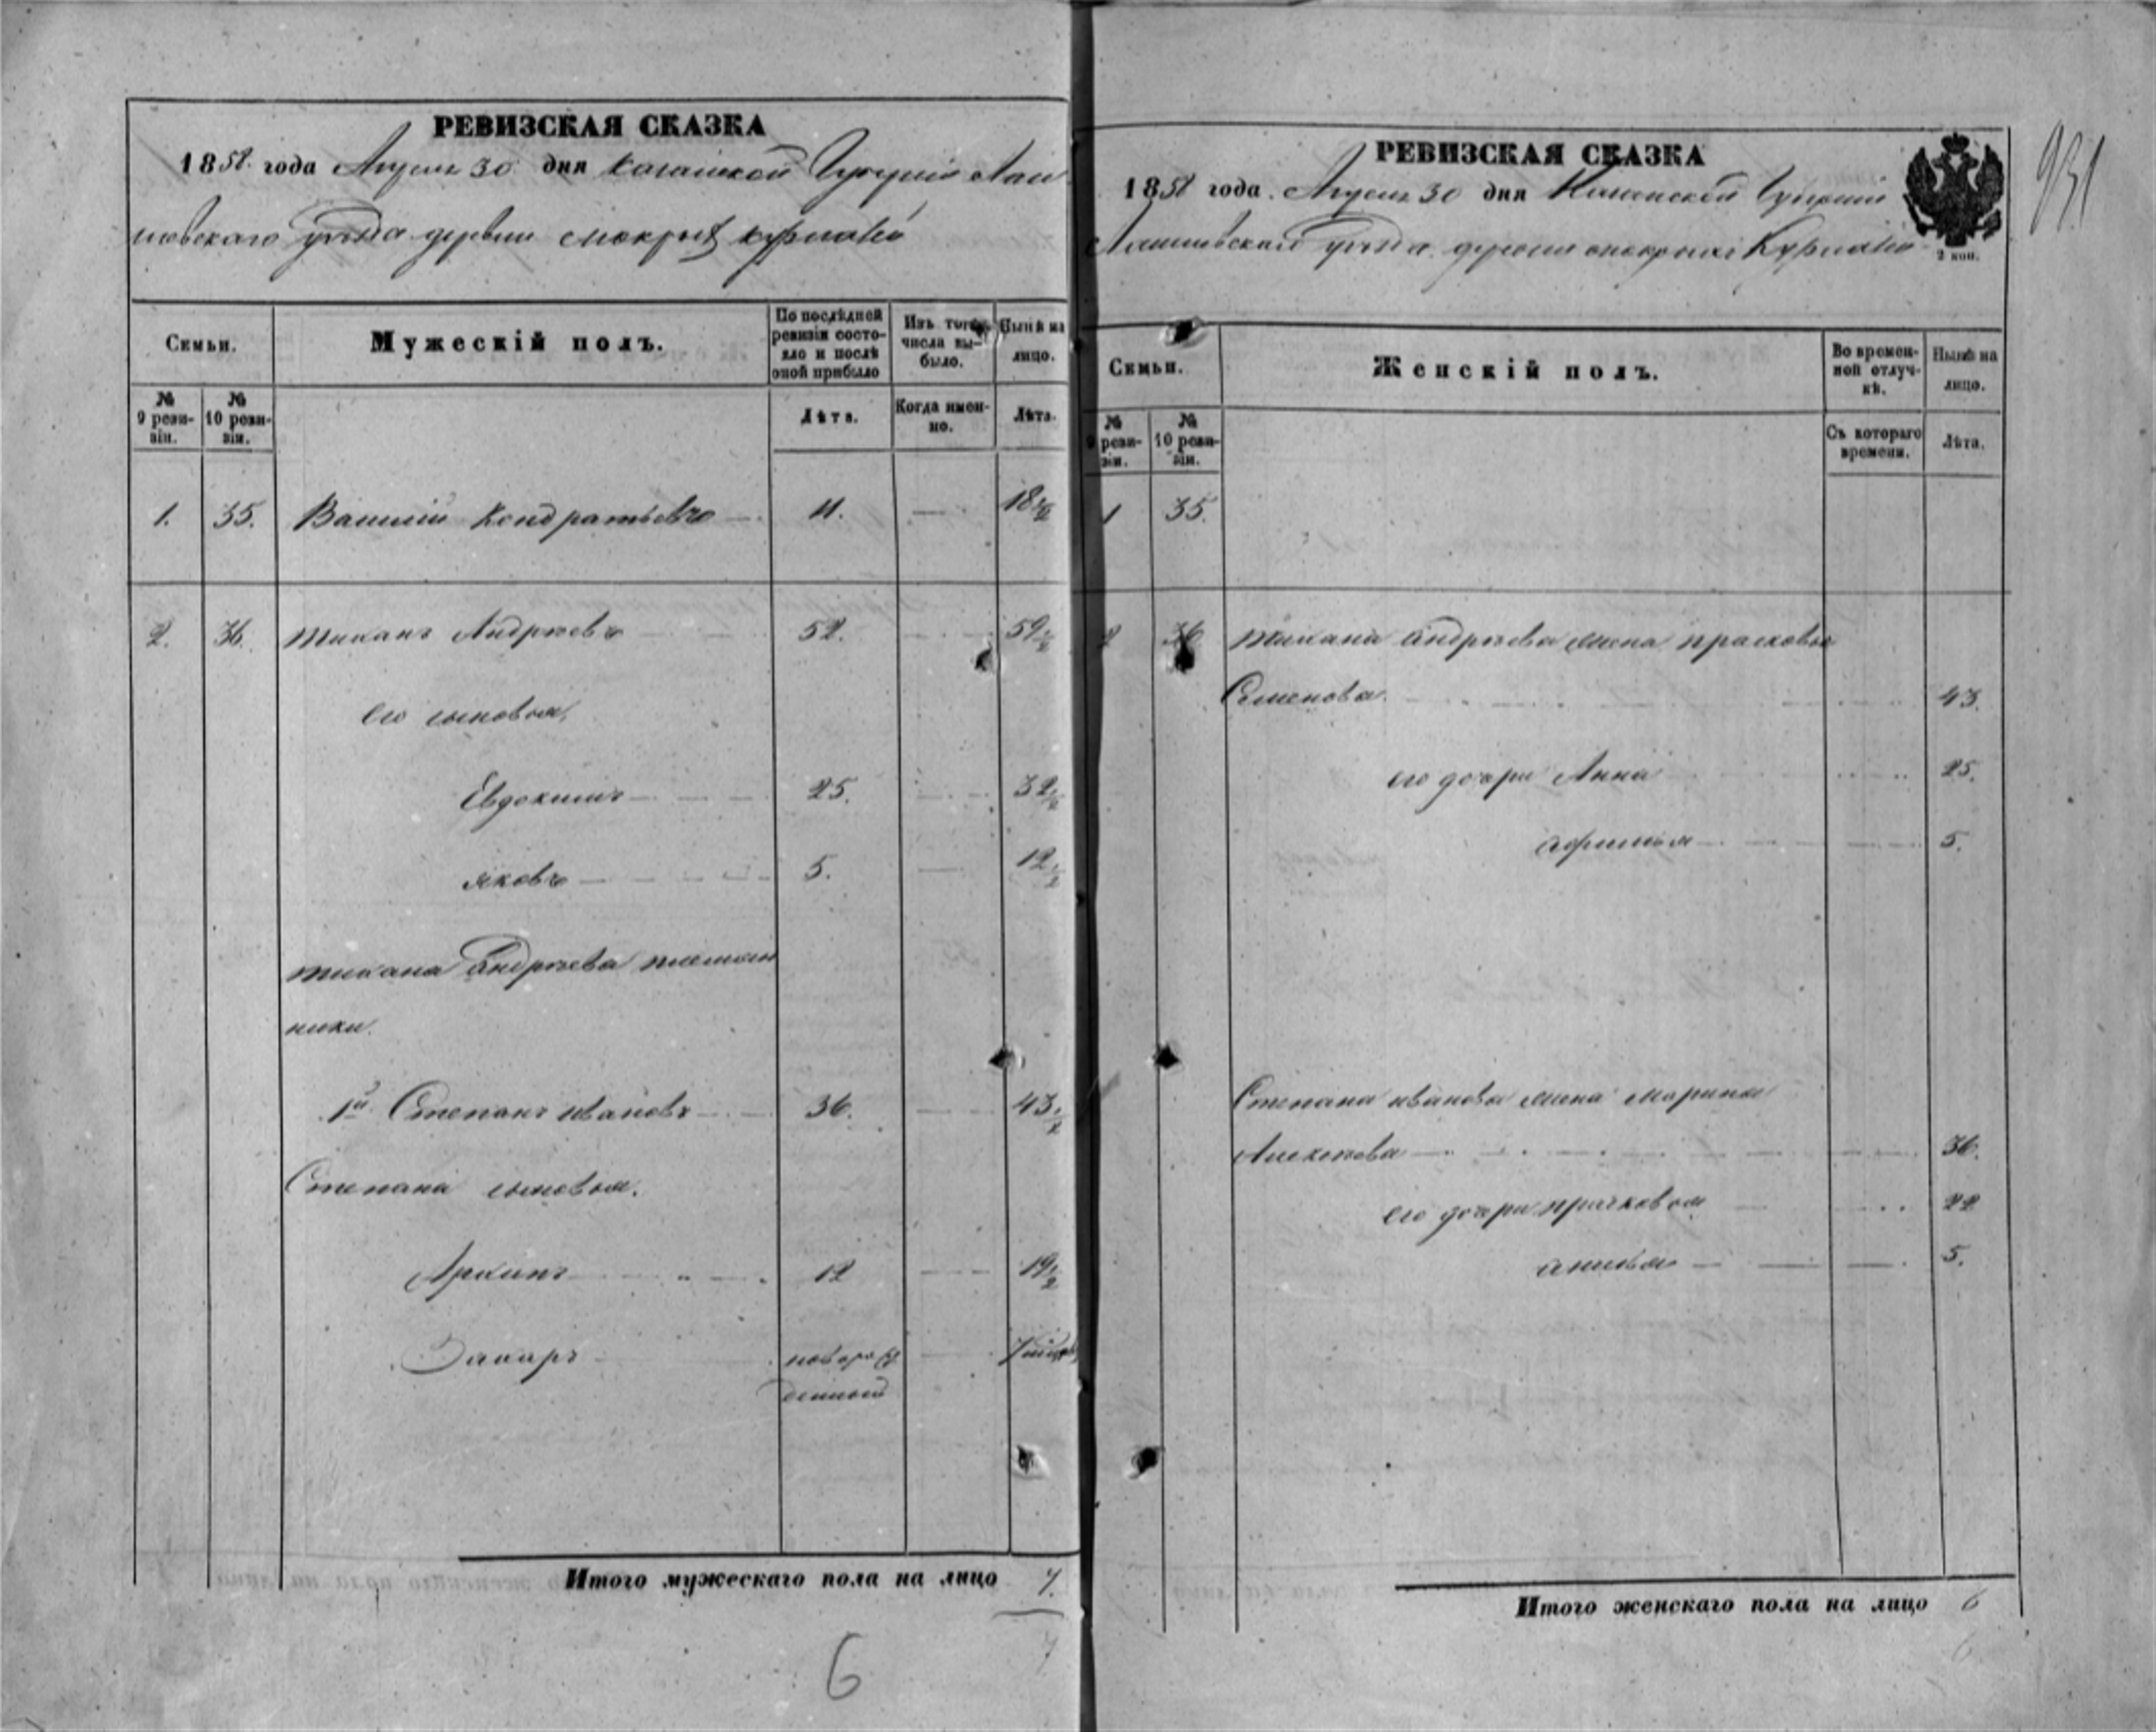 РЕВИЗСКАЯ СКАЗКА
1858 года Апреля 30 дня Казанской Губернии Лаи
шевскаго уезда деревни мокрых курналей
Семьи.
Мужескій полъ.
По послѣдней ревизіи состояло и послѣ оной прибыло
Изъ того числа выбыло.
Нынѣ на лицо.
№ 9 ревизіи.
№ 10 ревизіи.
Лѣта.
Когда именно.
Лѣта.
1. 35. Василій Кондратьевъ — 11. — 18 1/2
2. 36. Тиханъ Андреевъ 52. 59 1/2
его сыновья,
Евдокимъ 25. 32 1/2
яковъ 5. 12 1/2
тихана Андреева племян
ники.
1й Степанъ ивановъ 36. 43 1/2
Степана сыновья.
Архипъ 12 19 1/2
Захаръ новорож
денный
Итого мужескаго пола на лицо 7.
7
6
РЕВИЗСКАЯ СКАЗКА
1858 года Апреля 30 дня Казанской Губерніи
Лаишевскаго уезда деревни мокрыхъ Курналей
2 коп.
931
Семьи.
Женскій полъ.
Во временной отлучкѣ.
Нынѣ на лицо.
№ 9 ревизіи.
№ 10 ревизіи.
Съ котораго времени.
Лѣта.
1 35.
2 36 тихана андреева жена прасковья
Семенова. 43.
его дочери Анна 25.
афимья 5.
Степана иванова жена марина
Алексеева 36.
его дочери прасковья 22
анисья 5.
Итого женскаго пола на лицо 6
6